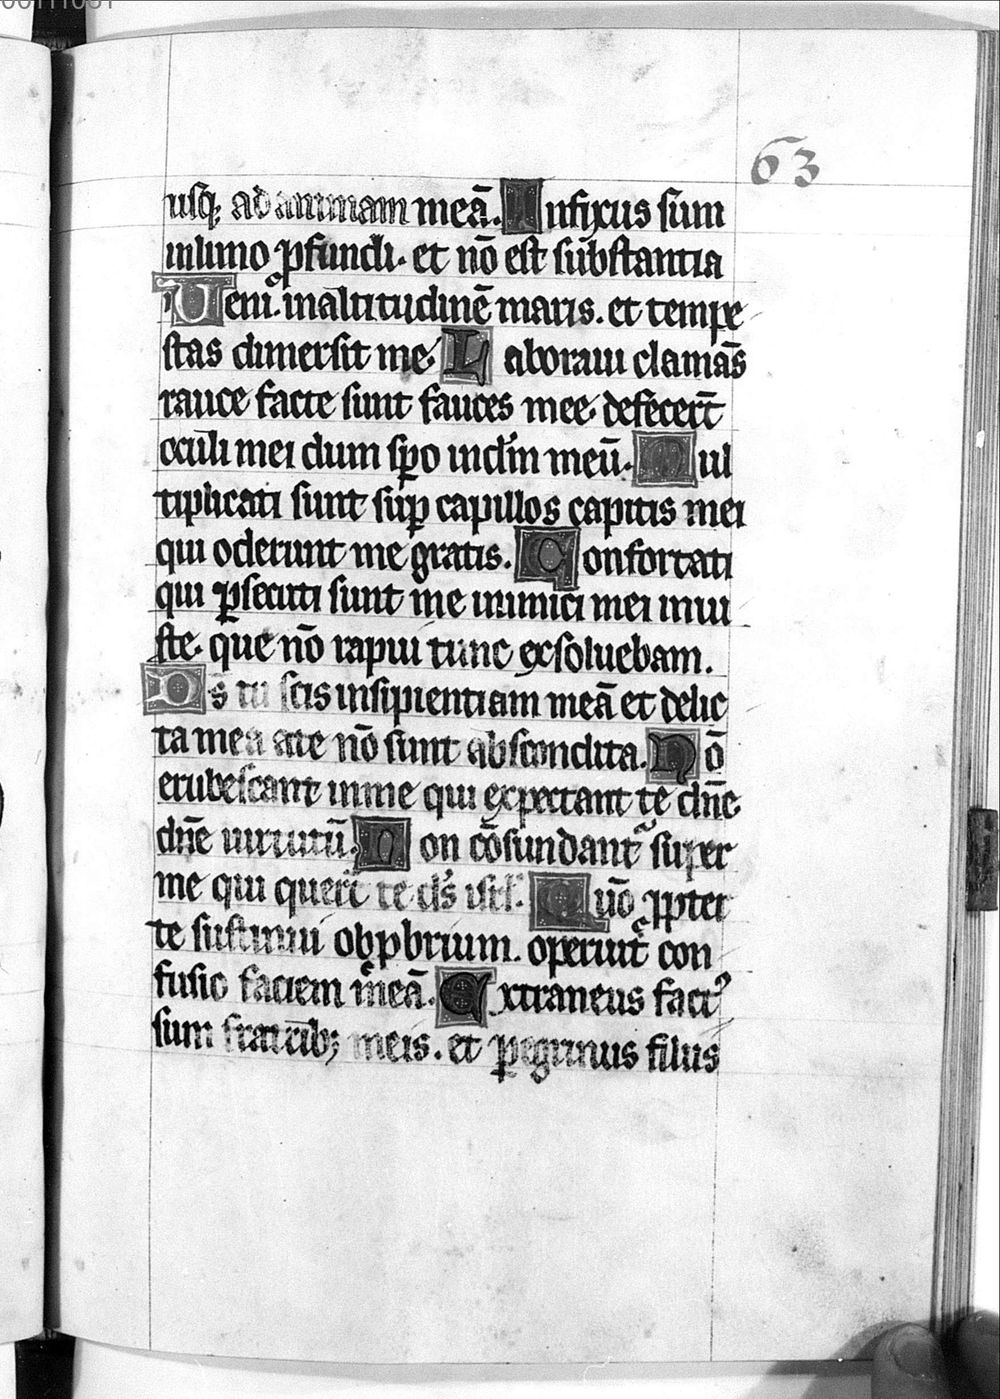 63
usq; ad animam meā. Infixus sum
inlimo ꝓfundi. et nō est substantia
Ueni inaltitudinē maris. et tempe
stas dimersit me. Laboraui clamās
rauce facte sunt fauces mee. defecerūt
oculi mei dum spo indm̄ meū. Mul
tiplicati sunt suꝑ capillos capitis mei
qui oderunt me gratis. Confortati
qui ꝑsecuti sunt me inimici mei iniu
ste. que nō rapui tunc exsoluebam.
Ds̄ tu scis insipientiam meā et delic
ta mea a te nō sunt abscondita. Nō
erubescant inme qui expectant te dn̄e
dn̄e uirtutū. Non cōfundant᷑ super
me qui querūt te ds̄ isrl̄. Qm̄ ꝓpter
te sustinui obꝓbrium. operuit con
fusio faciem meā. Extraneus factꝰ
sum fratrib; meis. et ꝑegrinus filiis